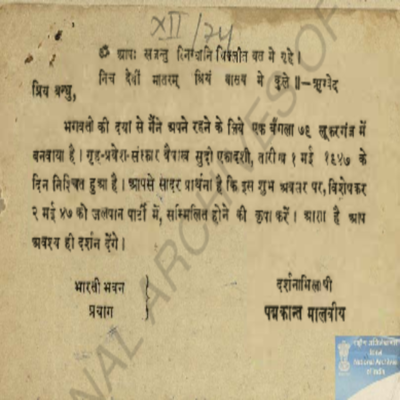 XII/74
ॐ आपः सृजन्तु स्निग्धानि चिक्लीत वस मे गृहे।
निच देवीं मातरम् श्रियं वासय मे कुले॥—ऋग्वेद
प्रिय बन्धु,
भगवती की दया से मैंने अपने रहने के लिये एक बँगला ७६ लूकरगंज में
बनवाया है। गृह-प्रवेश-संस्कार वैशाख सुदी एकादशी, तारीख १ मई १९४७ के
दिन निश्चित हुआ है। आपसे सादर प्रार्थना है कि इस शुभ अवसर पर, विशेषकर
२ मई ४७ को जलपान पार्टी में, सम्मिलित होने की कृपा करें। आशा है आप
अवश्य ही दर्शन देंगे।
भारती भवन
प्रयाग
दर्शनाभिलाषी
पद्मकान्त मालवीय
NAL ARCHIVES OF
राष्ट्रीय अभिलेखागार
National Archives
of India